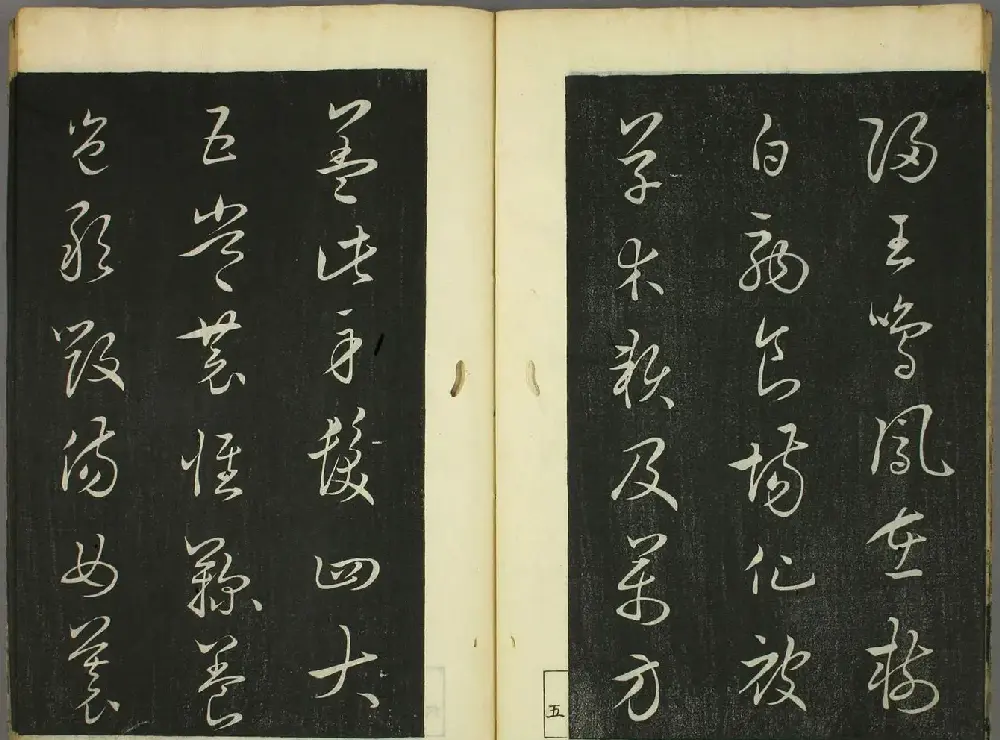 歸王鳴鳳在樹
白駒食場化被
草木賴及萬方
五
蓋此身髮四大
五常恭惟鞠養
豈敢毀傷女慕